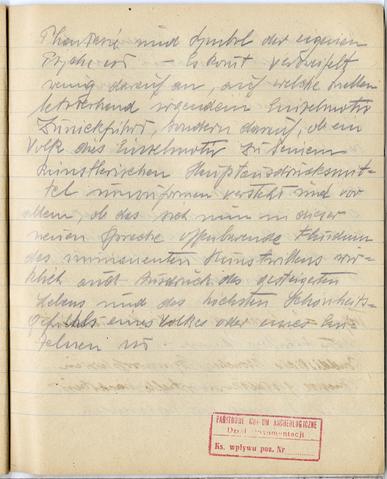 Phantasie und Symbol der eigenen
Psyche ist — Es kommt verzweifelt
wenig darauf an, auf welche Quellen
letztstehend irgendein Einzelmotiv
zurückführt, sondern darauf, ob ein
Volk dies Einzelmotiv zu seinem
künstlerischen Hauptausdrucksmit-
tel umzuformen versteht und vor
allem, ob das sich nun in dieser
neuen Sprache offenbarende Fluidum
des immanenten Kunstwillens wir-
klich auch Ausdruck des gesteigerten
Lebens und des höchsten Schönheits-
gefühls eines Volkes oder eines Ein-
zelnen ist.
PAŃSTWOWE MUZEUM ARCHEOLOGICZNE
Dział Dokumentacji
Ks. wpływu poz. Nr